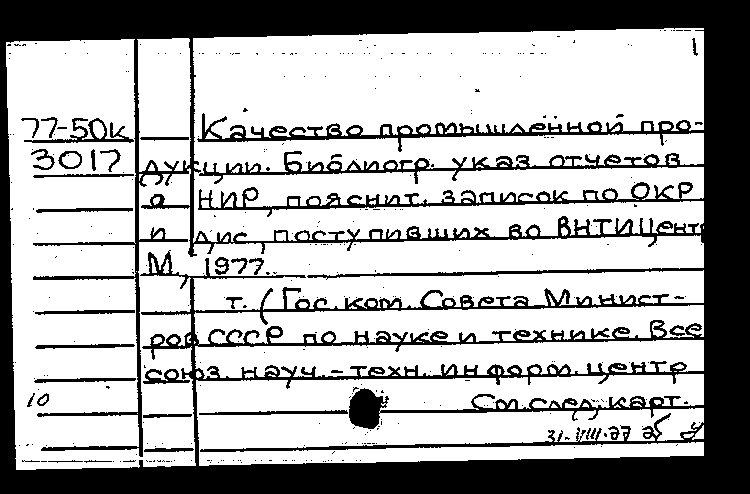 1
77-50к Качество промышленной про-
3017 дукции. Библиогр. указ. отчетов
о НИР, пояснит. записок по ОКР
и дис., поступивших во ВНТИЦентр
М., 1977.
т. (Гос. ком. Совета Минист-
ров СССР по науке и технике. Все
союз. науч.-техн. информ. центр
10 См. след. карт.
31-VIII-77